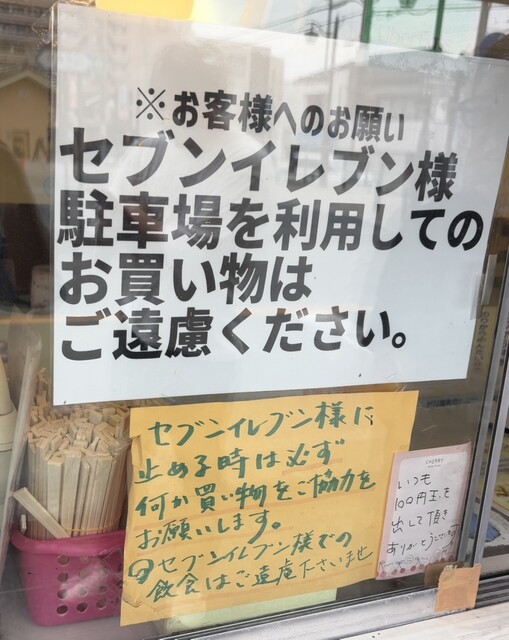 ※お客様へのお願い
セブンイレブン様
駐車場を利用しての
お買い物は
ご遠慮ください。
セブンイレブン様に
止める時は必ず
何か買い物をご協力を
お願いします。
セブンイレブン様での
飲食はご遠慮下さいませ
CHERRY
いつも
100円玉を
出して頂き
ありがとうございます